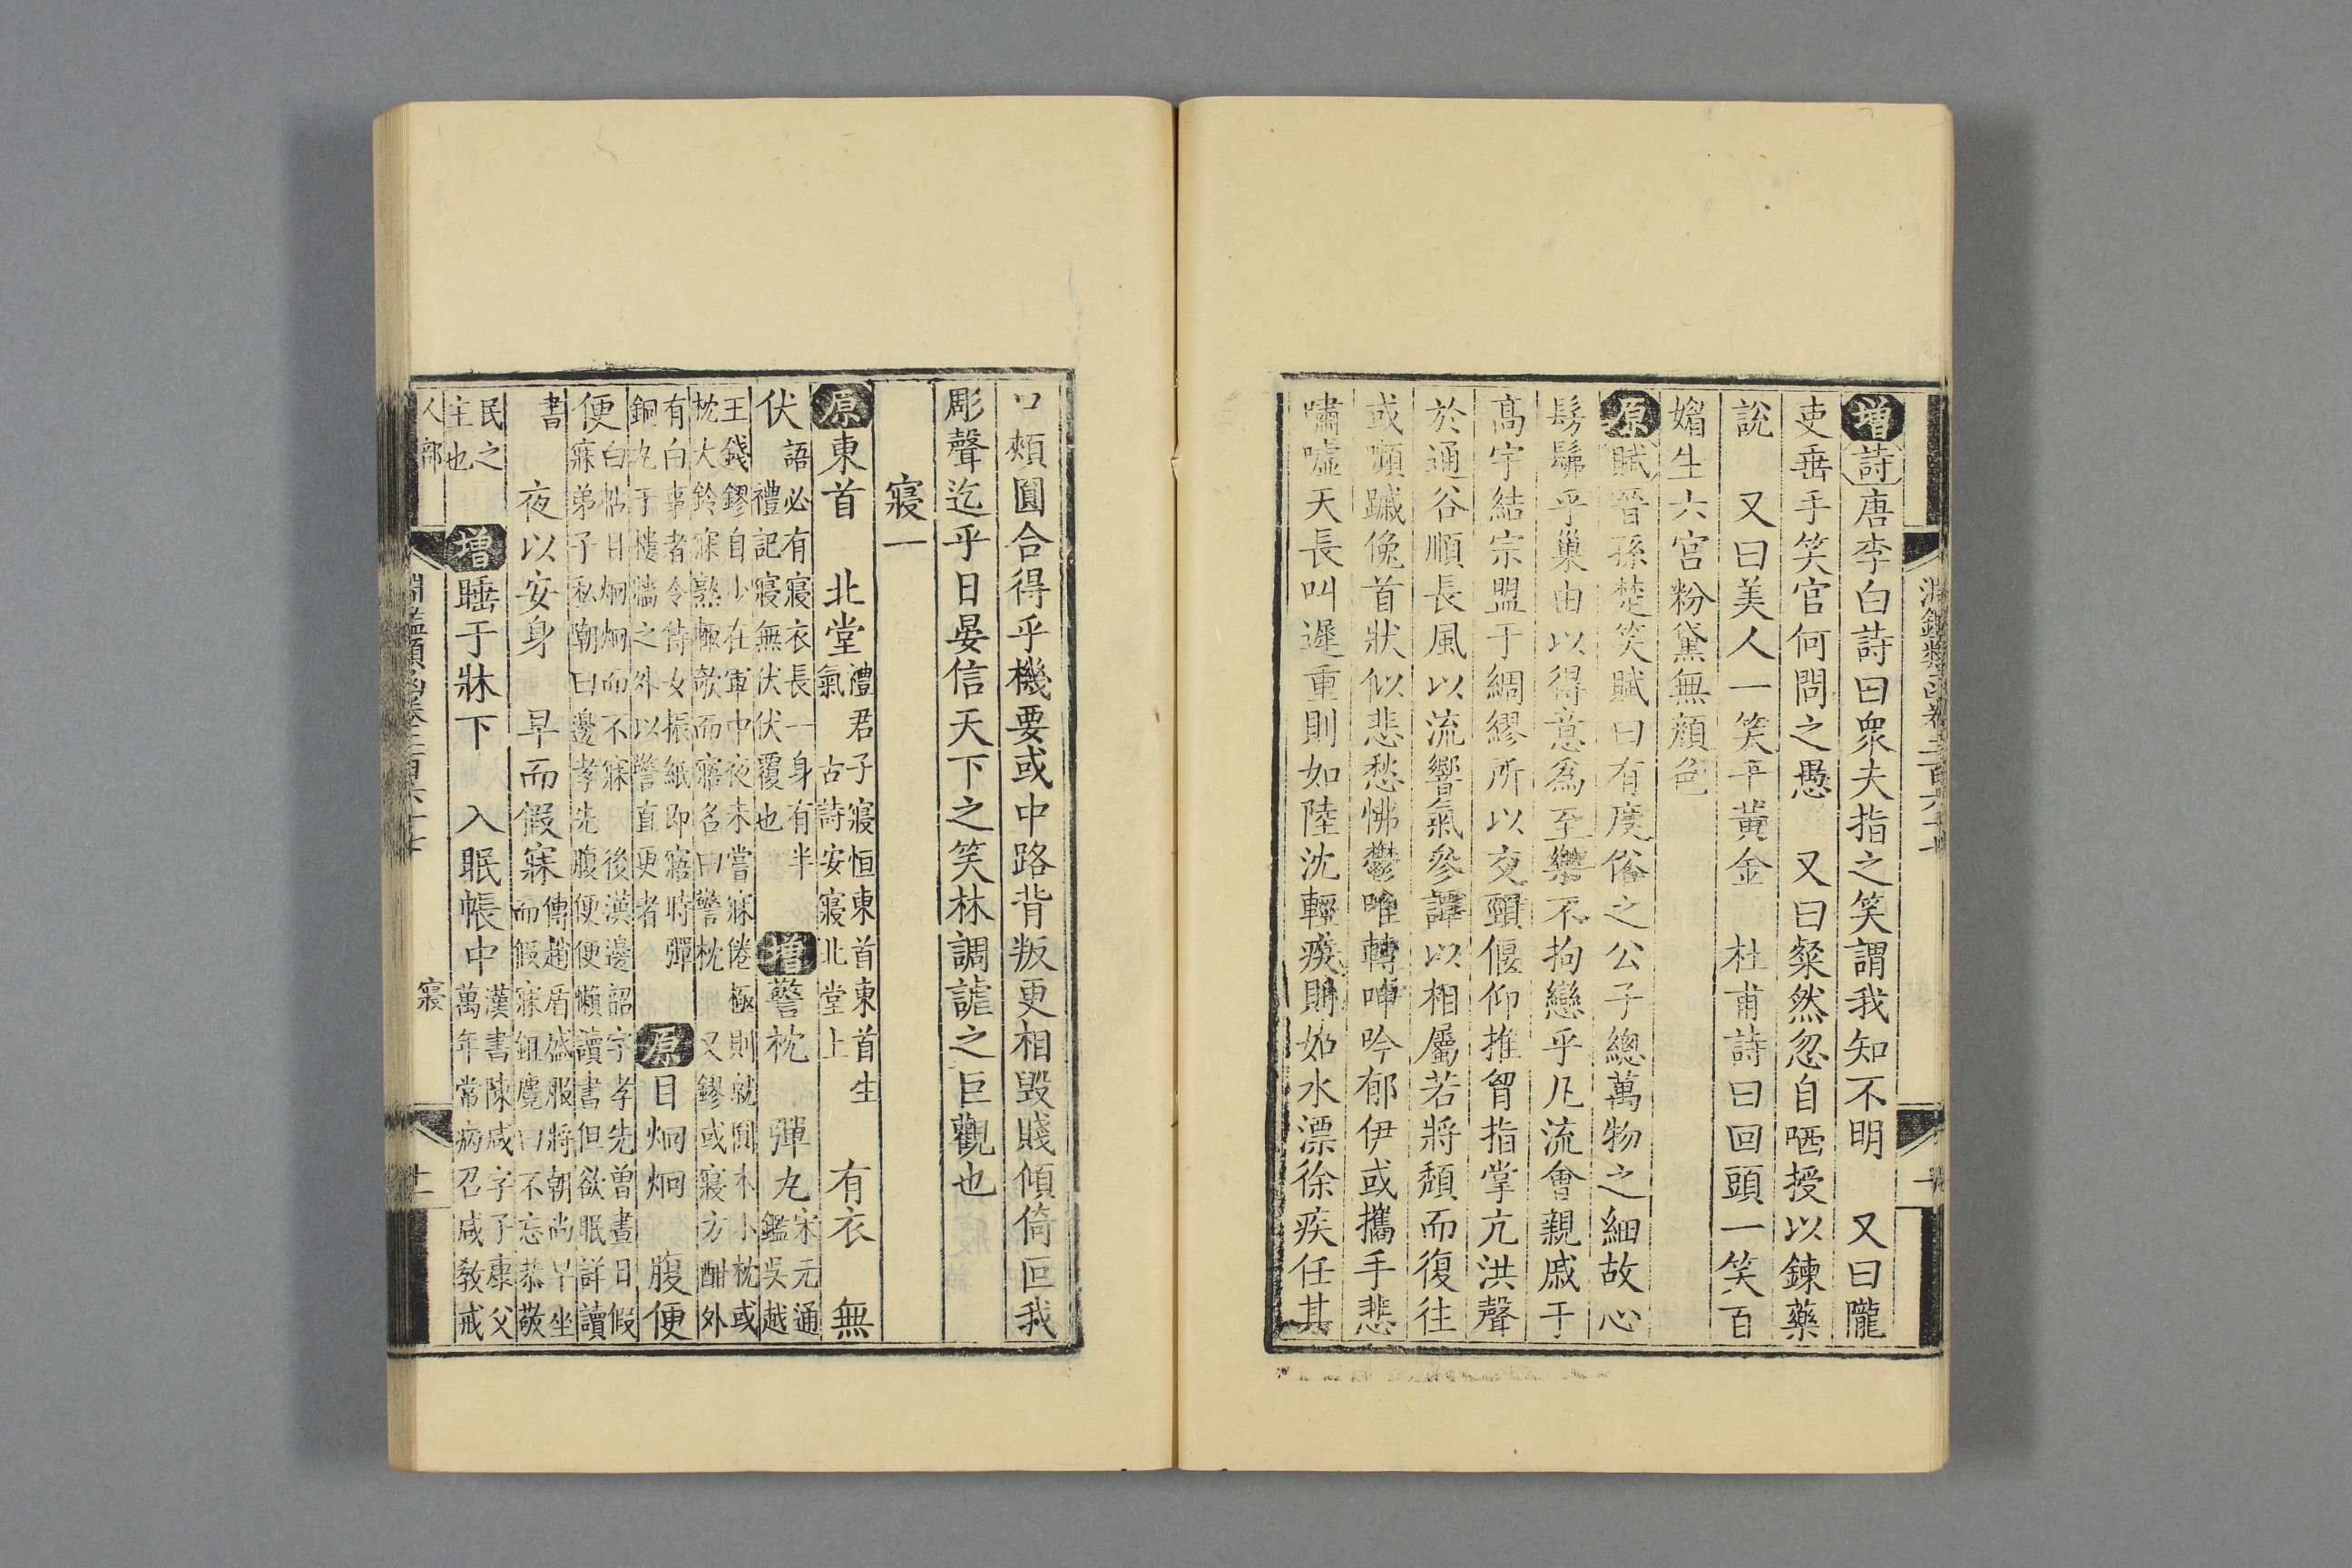 增詩唐李白詩曰衆夫指之笑謂我知不明　又曰隴
吏垂手笑官何問之愚　又曰粲然忽自哂授以鍊藥
說　又曰美人一笑千黃金　杜甫詩曰回頭一笑百
媚生六宮粉黛無顏色
原賦晉孫楚笑賦曰有度俗之公子總萬物之細故心
髣髴乎巢由以得意爲至樂不拘戀乎凡流會親戚于
高宇結宗盟于綢繆所以交頸偃仰推胷指掌亢洪聲
於通谷順長風以流響氣參譚以相屬若將頹而復往
或嚬蹙俛首狀似悲愁怫鬱唯轉呻吟郁伊或攜手悲
嘯噓天長叫遲重則如陸沈輕疾則如水漂徐疾任其
口頰圓合得乎機要或中路背叛更相毀賤傾倚叵我
彫聲迄乎日晏信天下之笑林調謔之巨觀也
寢一
原東首　北堂禮君子寢恒東首東首生氣　古詩安寢北堂上　有衣　無
伏語必有寢衣長一身有半　禮記寢無伏伏覆也　增警枕　彈丸宋元通鑑吳越
王錢鏐自少在軍中夜未嘗寐倦極則就圓木小枕或枕大鈴寐熟輒欹而寤名曰警枕　又鏐或寢方酣外
有白事者令侍女振紙即寤時彈銅丸于樓牆之外以警直更者　原目炯炯　腹便
便白帖目炯炯而不寐　後漢邊韶字孝先曾晝日假寐弟子私嘲曰邊孝先腹便便懶讀書但欲眠詳讀
書　夜以安身　早而假寐傳趙盾盛服將朝尚早坐而假寐鉏麑曰不忘恭敬
民之主也　增睡于牀下　入眠帳中漢書陳咸字子康父萬年常病召咸教戒
人部　淵鑑類函卷二百六十七　寢　十一